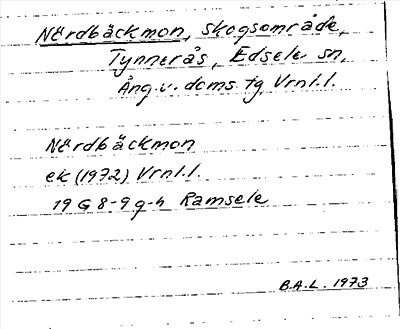 Nördbäckmon, skogsområde,
Tynnerås, Edsele sn,
Ång.v. doms. tg, Vrnl.l.
Nördbäckmon
ek (1972) Vrnl.l.
19 G 8-9 g-h Ramsele
B.A.L. 1973